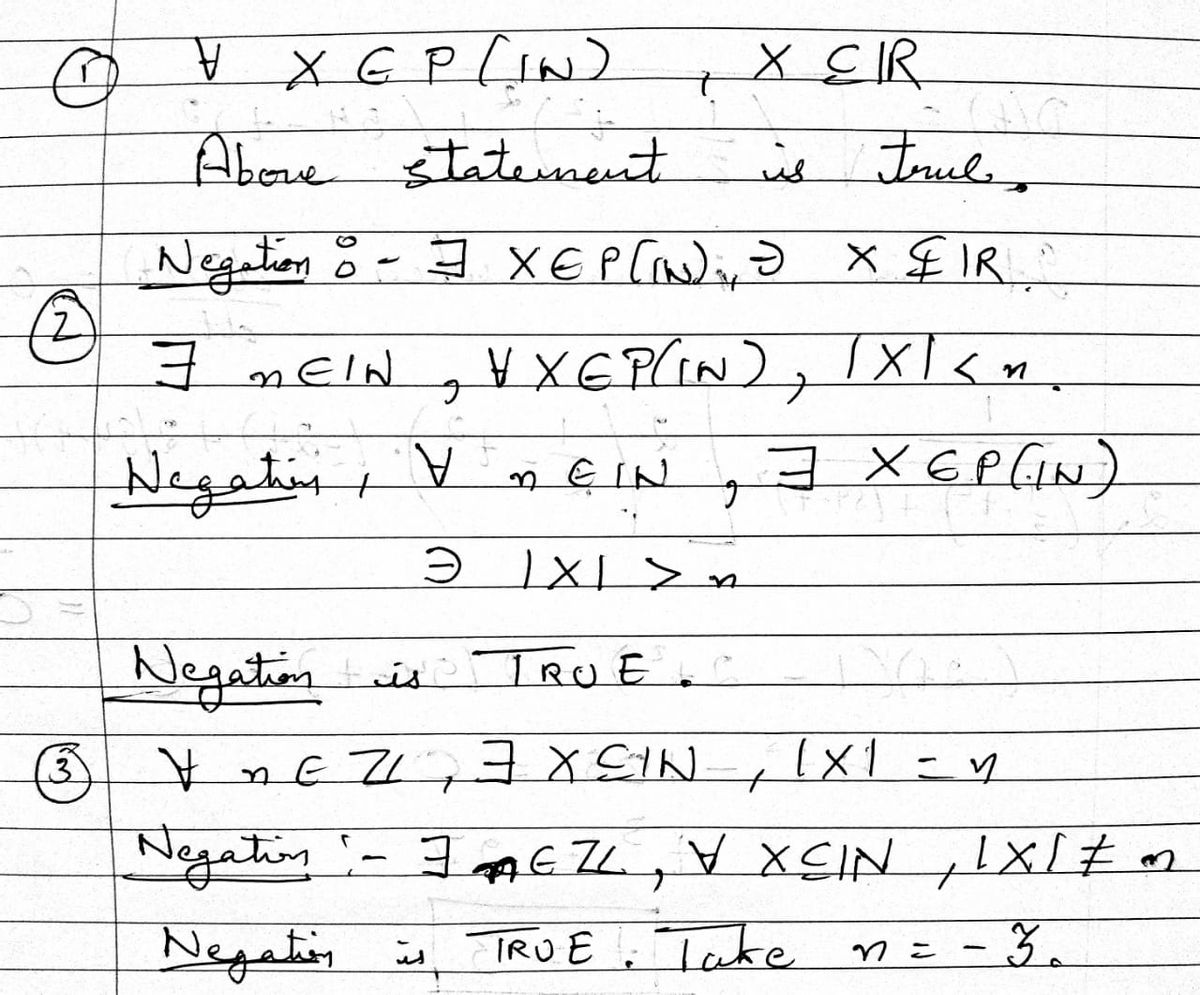 ① ∀ X ∈ P(ℕ) , X ⊆ ℝ
Above statement is true.
Negation :- ∃ X ∈ P(ℕ), ∋ X ⊈ ℝ.
② ∃ n ∈ ℕ , ∀ X ∈ P(ℕ), |X| < n.
Negation , ∀ n ∈ ℕ , ∃ X ∈ P(ℕ)
∋ |X| > n
Negation is TRUE.
③ ∀ n ∈ ℤ , ∃ X ⊆ ℕ , |X| = n
Negation :- ∃ n ∈ ℤ , ∀ X ⊆ ℕ , |X| ≠ n
Negation is TRUE. Take n = -3.